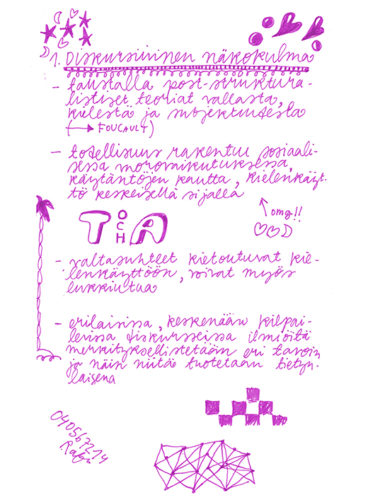 1. Diskursiivinen näkökulma
- taustalla post-struktura-
listiset teoriat vallasta,
kielestä ja subjektiudesta
(→ FOUCAULT)
- todellisuus rakentuu sosiaali-
sessa vuorovaikutuksessa,
käytäntöjen kautta, kielenkäyt-
tö keskeisellä sijalla
omg!!
TiA
OCH
- valtasuhteet kietoutuvat kie-
lenkäyttöön, voivat myös
lukkiutua
- erilaisissa, keskenään kilpai-
levissa diskursseissa ilmiöitä
merkityksellistetään eri tavoin
ja näin niitä tuotetaan tietyn-
laisena